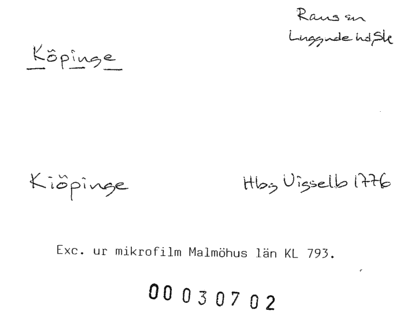 Raus sn
Luggude hd, Sk
Köpinge
Kiöpinge
Hbg Vigselb 1776
Exc. ur mikrofilm Malmöhus län KL 793.
00 030702